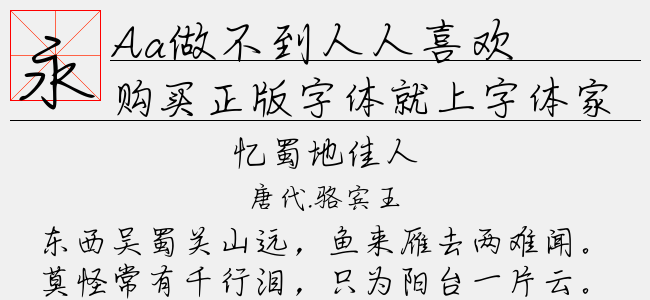 永
Aa做不到人人喜欢
购买正版字体就上字体家
忆蜀地佳人
唐代.骆宾王
东西吴蜀关山远，鱼来雁去两难闻。
莫怪常有千行泪，只为阳台一片云。